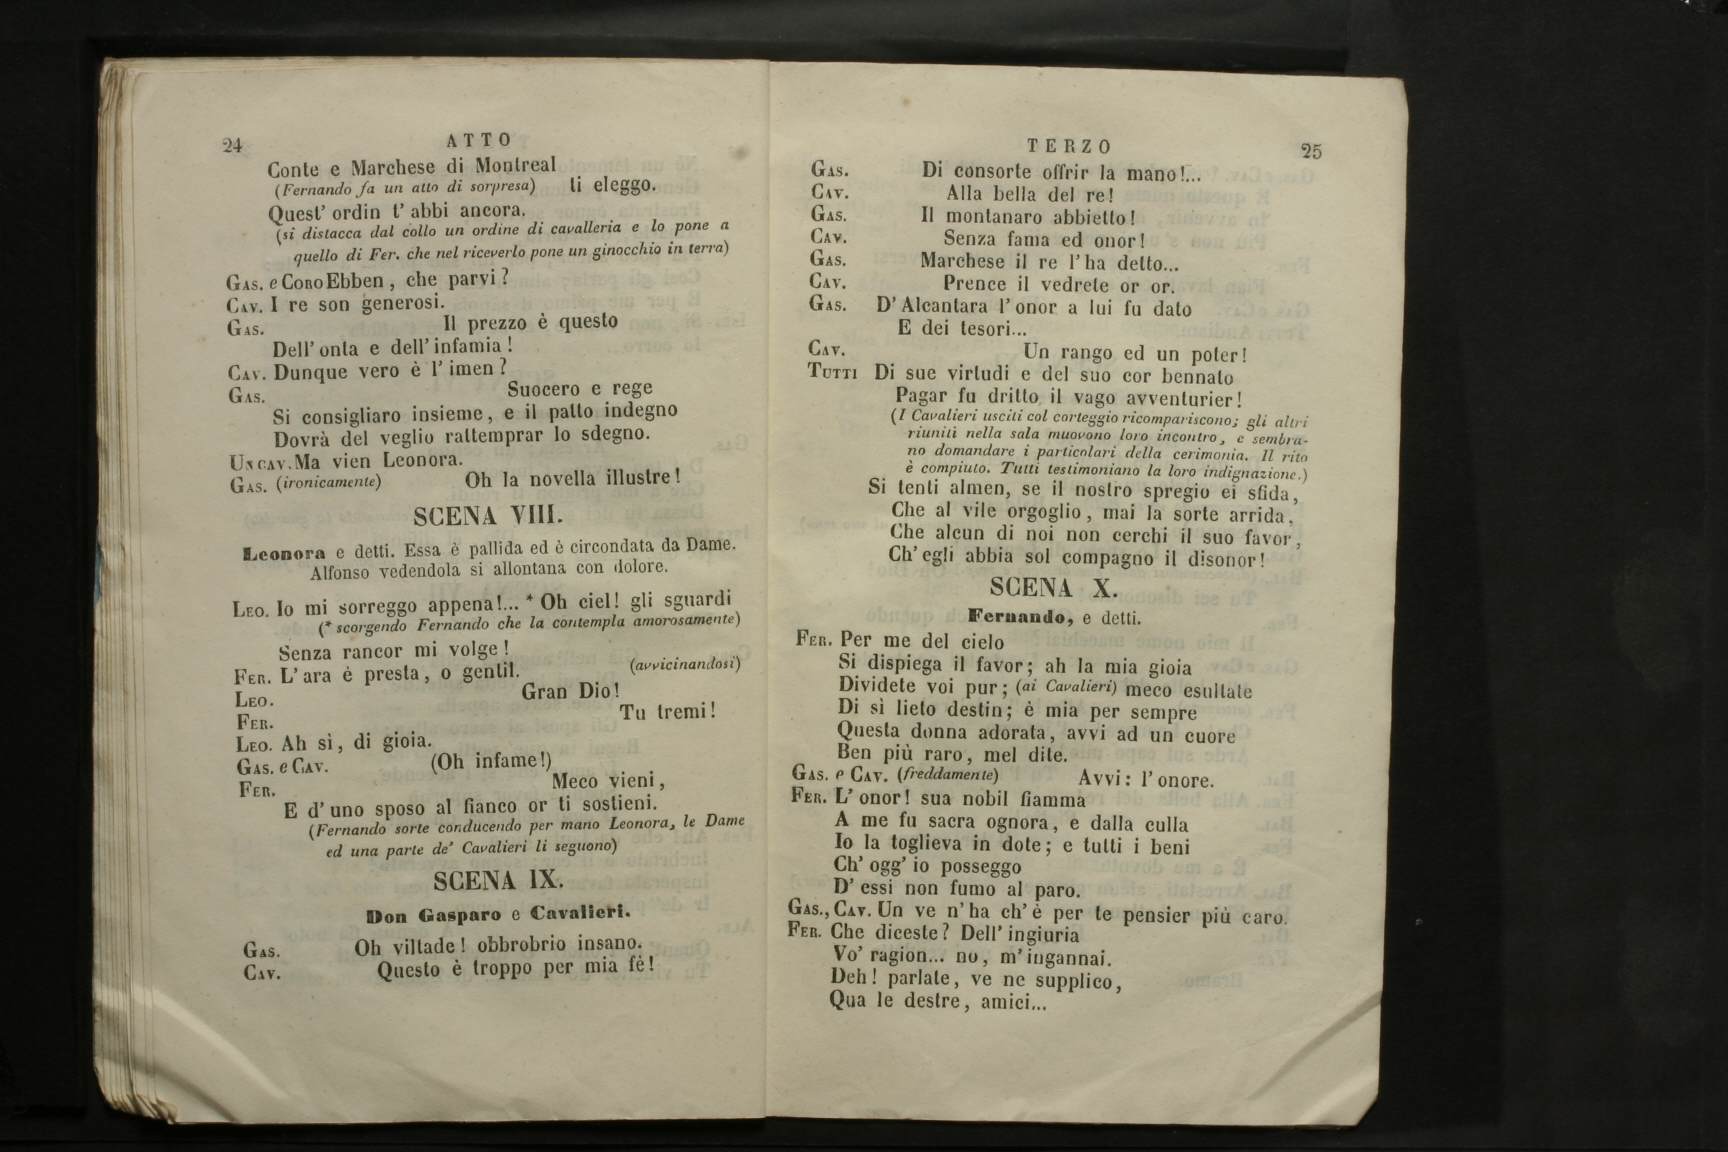 24
ATTO
Conte e Marchese di Montreal
(Fernando fa un atto di sorpresa) ti eleggo.
Quest' ordin t' abbi ancora.
(si distacca dal collo un ordine di cavalleria e lo pone a
quello di Fer. che nel riceverlo pone un ginocchio in terra)
GAS. e CORO Ebben, che parvi?
CAV. I re son generosi.
GAS. Il prezzo è questo
Dell' onta e dell' infamia!
CAV. Dunque vero è l' imen?
GAS. Suocero e rege
Si consigliaro insieme, e il patto indegno
Dovrà del veglio rattemprar lo sdegno.
UN CAV. Ma vien Leonora.
GAS. (ironicamente) Oh la novella illustre!
SCENA VIII.
Leonora e detti. Essa è pallida ed è circondata da Dame.
Alfonso vedendola si allontana con dolore.
LEO. Io mi sorreggo appena!... * Oh ciel! gli sguardi
(* scorgendo Fernando che la contempla amorosamente)
Senza rancor mi volge!
FER. L' ara è presta, o gentil. (avvicinandosi)
LEO. Gran Dio!
FER. Tu tremi!
LEO. Ah sì, di gioia.
GAS. e CAV. (Oh infame!)
FER. Meco vieni,
E d' uno sposo al fianco or ti sostieni.
(Fernando sorte conducendo per mano Leonora, le Dame
ed una parte de' Cavalieri li seguono)
SCENA IX.
Don Gasparo e Cavalieri.
GAS. Oh viltade! obbrobrio insano.
CAV. Questo è troppo per mia fè!
TERZO
25
GAS. Di consorte offrir la mano!...
CAV. Alla bella del re!
GAS. Il montanaro abbietto!
CAV. Senza fama ed onor!
GAS. Marchese il re l' ha detto...
CAV. Prence il vedrete or or.
GAS. D' Alcantara l' onor a lui fu dato
E dei tesori...
CAV. Un rango ed un poter!
TUTTI Di sue virtudi e del suo cor bennato
Pagar fu dritto il vago avventurier!
(I Cavalieri usciti col corteggio ricompariscono; gli altri
riuniti nella sala muovono loro incontro, e sembra-
no domandare i particolari della cerimonia. Il rito
è compiuto. Tutti testimoniano la loro indignazione.)
Si tenti almen, se il nostro spregio ei sfida,
Che al vile orgoglio, mai la sorte arrida,
Che alcun di noi non cerchi il suo favor,
Ch' egli abbia sol compagno il disonor!
SCENA X.
Fernando, e detti.
FER. Per me del cielo
Si dispiega il favor; ah la mia gioia
Dividete voi pur; (ai Cavalieri) meco esultate
Di sì lieto destin; è mia per sempre
Questa donna adorata, avvi ad un cuore
Ben più raro, mel dite.
GAS. e CAV. (freddamente) Avvi: l' onore.
FER. L' onor! sua nobil fiamma
A me fu sacra ognora, e dalla culla
Io la toglieva in dote; e tutti i beni
Ch' ogg' io posseggo
D' essi non fumo al paro.
GAS., CAV. Un ve n' ha ch' è per te pensier più caro.
FER. Che diceste? Dell' ingiuria
Vo' ragion... no, m' ingannai.
Deh! parlate, ve ne supplico,
Qua le destre, amici...